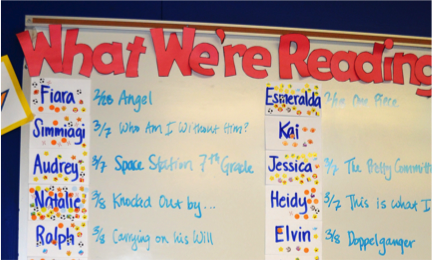 What We're Reading
Fiara 2/28 Angel
Simmiagi 3/7 Who Am I Without Him?
Audrey 3/7 Space Station 7th Grade
Natalie 3/8 Knocked Out by...
Ralph 3/8 Carrying on his Will
Esmeralda One Piece
Kai
Jessica 3/7 The Pretty Committ
Heidy 3/7 This is what I
Elvin 3/8 Doppelganger